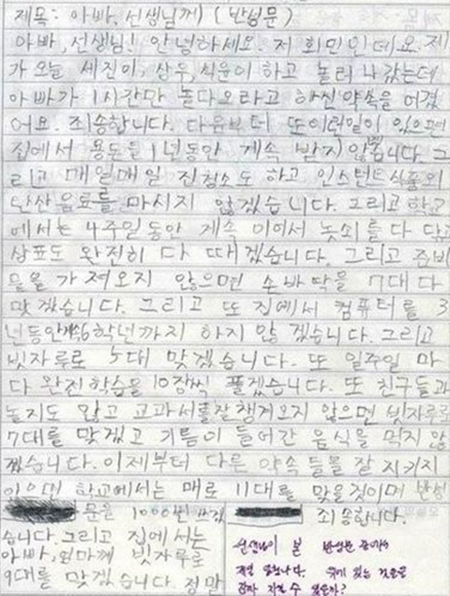 제목: 아빠, 선생님께) (반성문)
아빠, 선생님! 안녕하세요. 저 희민인데요. 제
가 오늘 세진이, 상우, 식윤이 하고 놀러 나갔는데
아빠가 1시간만 놀다오라고 하신 약속을 어겼
어요. 죄송합니다. 다음부터 또 이런일이 있으면
집에서 용돈을 1년동안 계속 받지 않겠습니다. 그
리고 매일매일 집청소도 하고 인스턴트식품와
탄산음료를 마시지 않겠습니다. 그리고 학교
에서는 4주일동안 계속 이어서 놋쇠를 다 닦고
상표도 완전히 다 떼겠습니다. 그리고 준비
물을 가져오지 않으면 손바닥을 7대 다
맞겠습니다. 그리고 또 집에서 컴퓨터를 3
년동안 6학년까지 하지 않겠습니다. 그리고
빗자루로 5대 맞겠습니다. 또 일주일 마
다 완진학습을 10장씩 풀겠습니다. 또 친구들과
놀지도 않고 교과서를 잘 챙겨오지 않으면 빗자루로
7대를 맞겠고 기름이 들어간 음식을 먹지 않
겠습니다. 이제부터 다른 약속들을 잘 지키지
않으면 학교에서는 매로 11대를 맞을것이며 반성
문을 1000번 쓰겠
습니다. 그리고 집에서는
아빠, 엄마께 빗자루로
9대를 맞겠습니다. 정말
죄송합니다.
선생님이 본 반성문 중에서
제일 입니다. 위에 있는 것들은
지킬 수 있을까?